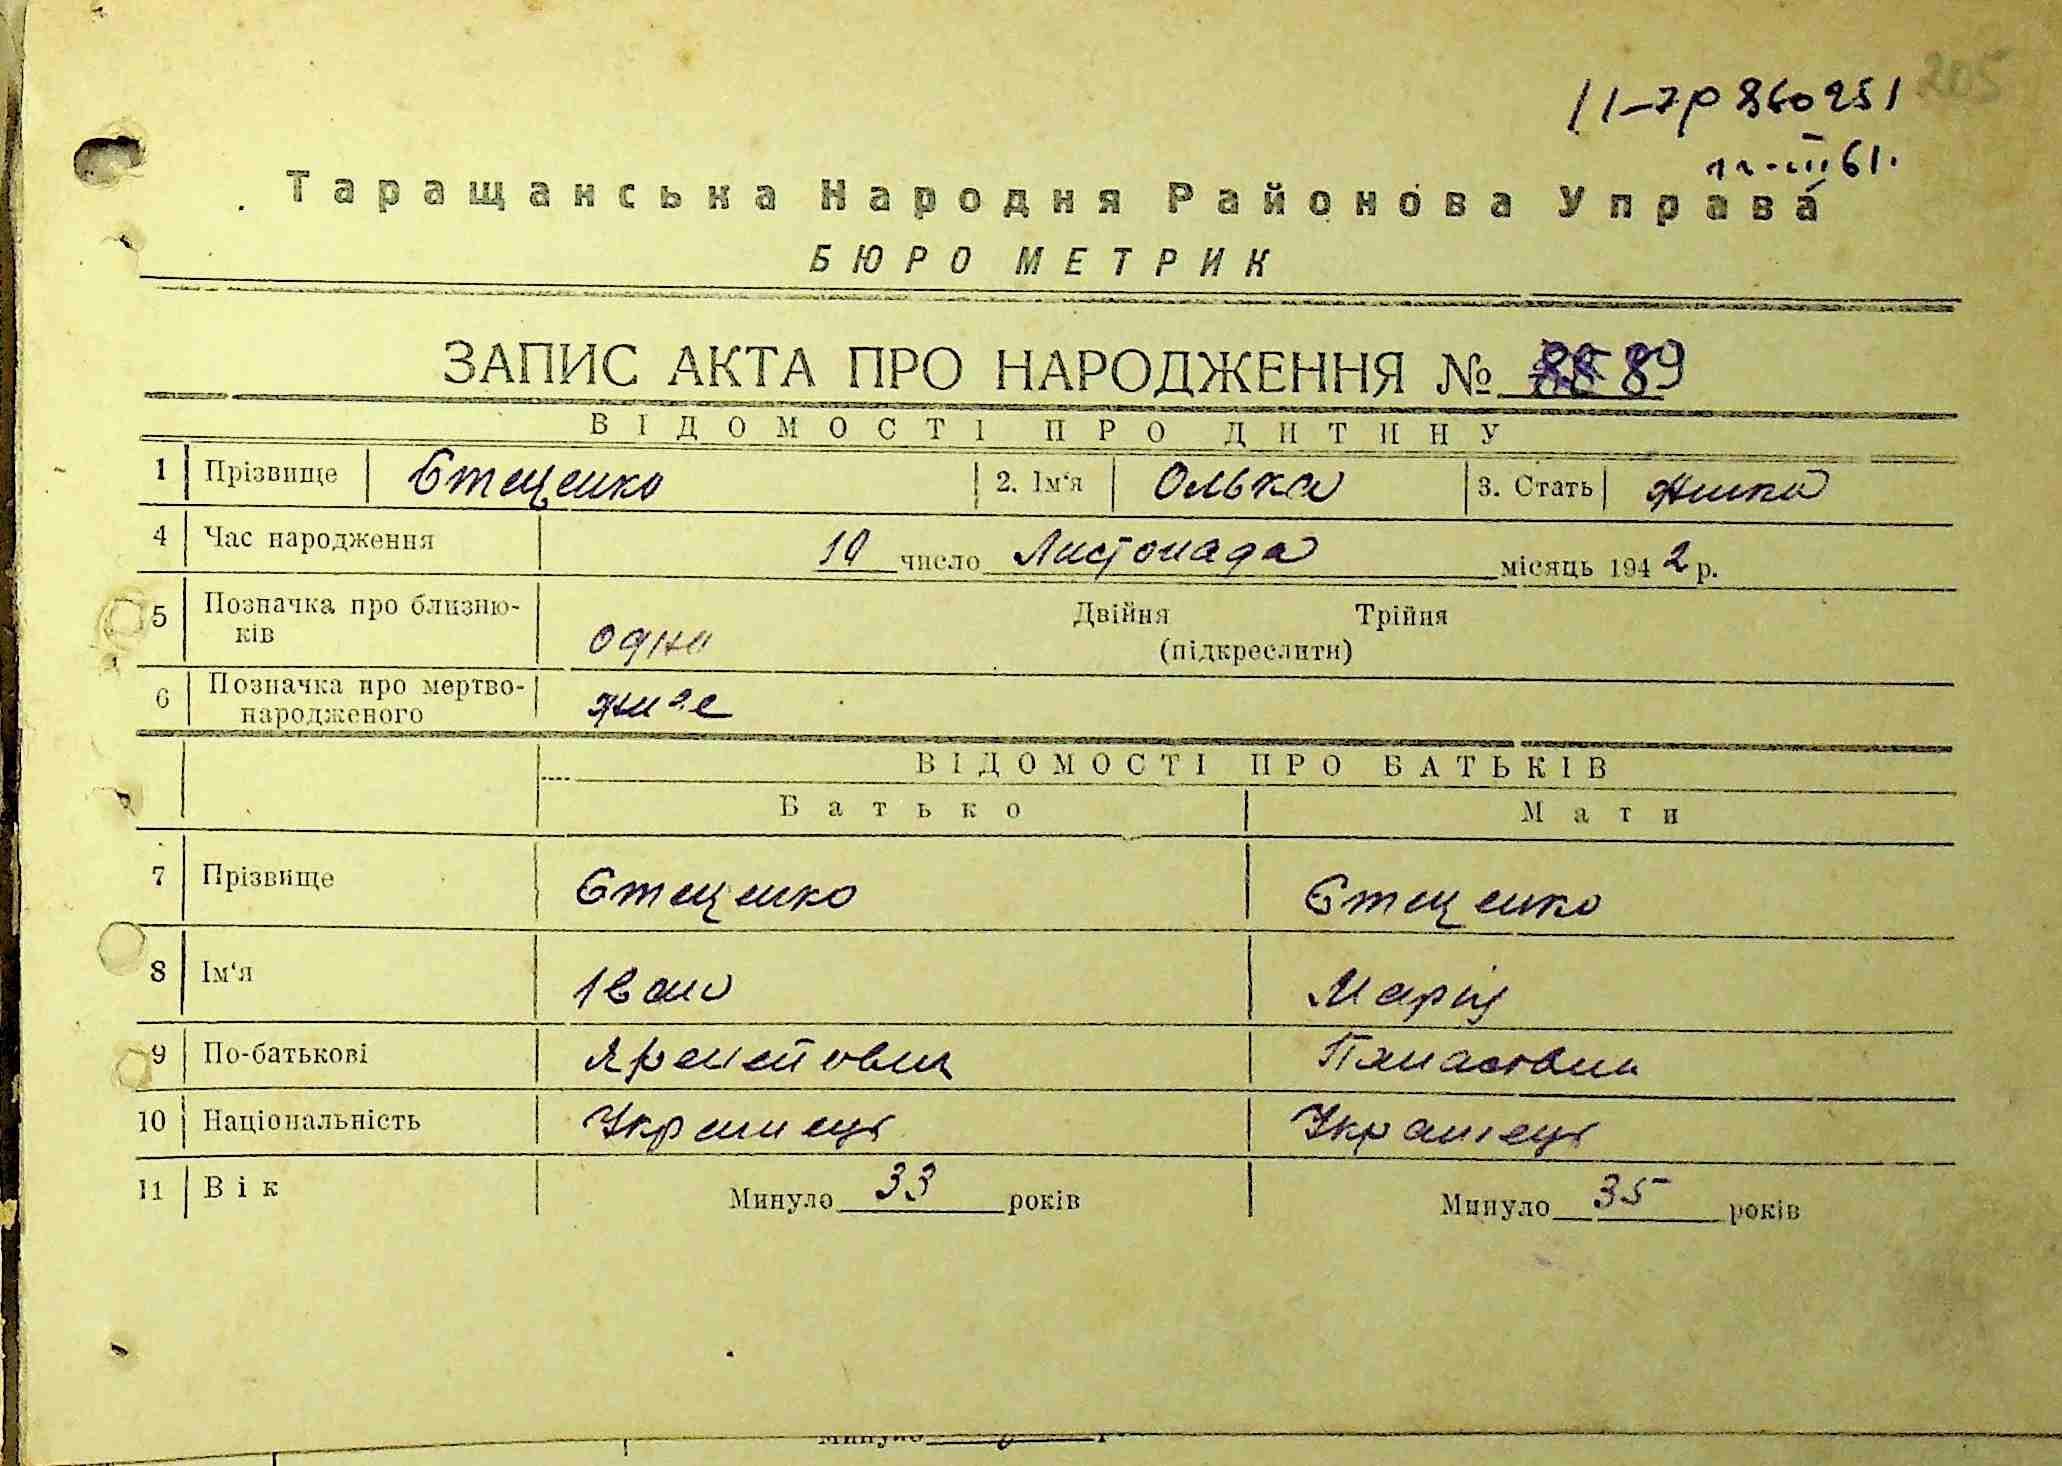 205
11-ур 860251
11-III 61.
Таращанська Народня Районова Управа
БЮРО МЕТРИК
ЗАПИС АКТА ПРО НАРОДЖЕННЯ № 88 89
ВІДОМОСТІ ПРО ДИТИНУ
1 Прізвище Стеценко 2. Ім'я Олька 3. Стать
4 Час народження 10 число Листопада місяць 1942 р.
5 Позначка про близню- Двійня Трійня
ків одна (підкреслити)
6 Позначка про мертво-
народженого живе
ВІДОМОСТІ ПРО БАТЬКІВ
Батько Мати
7 Прізвище Стеценко Стеценко
8 Ім'я Іван Марія
9 По-батькові Панасовна
10 Національність Українець Українець
11 Вік Минуло 33 років Минуло 35 років
Минуло